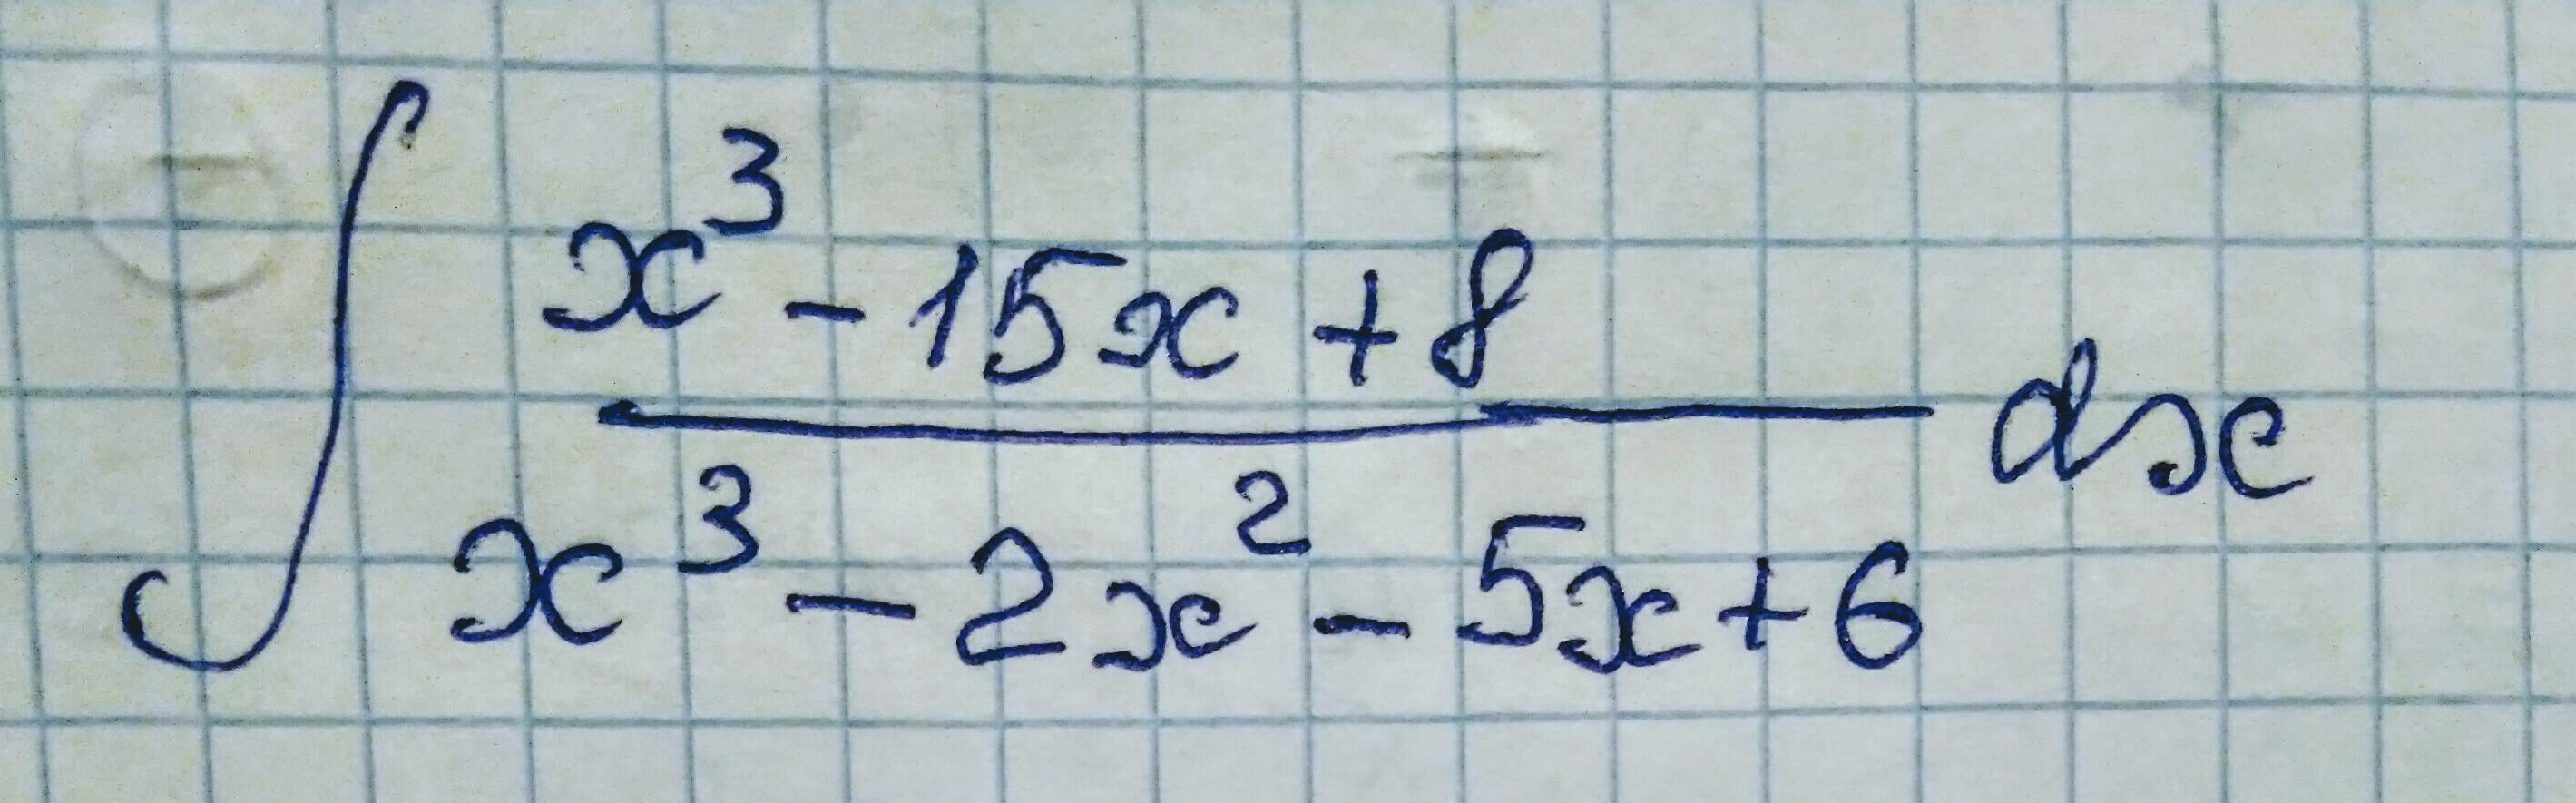 ∫ (x³ - 15x + 8)/(x³ - 2x² - 5x + 6) dx